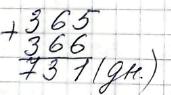 +365
366
731(дн.)